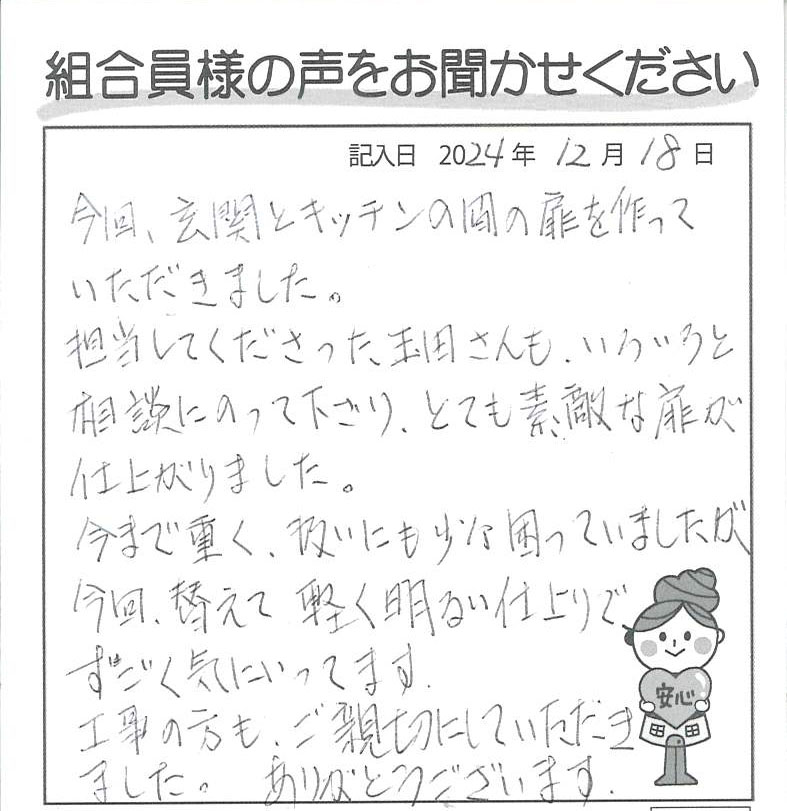 組合員様の声をお聞かせください
記入日 2024年 12月 18日
今回、玄関とキッチンの間の扉を作って
いただきました。
担当してくださった玉田さんも、いろいろと
相談にのって下さり、とても素敵な扉が
仕上がりました。
今まで重く、扱いにも少々困っていましたが
今回、替えて軽く明るい仕上りで、
すごく気にいってます.
工事の方も、ご親切にしていただき
ました。 ありがとうございます.
安心